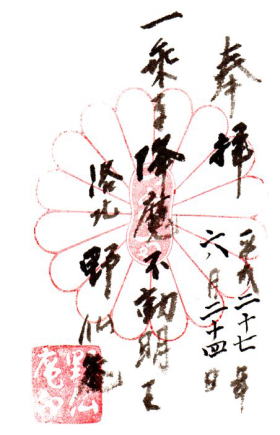 奉拝
平成二十七年
六月二十四日
一乗寺降魔不動明王
洛北野仏庵